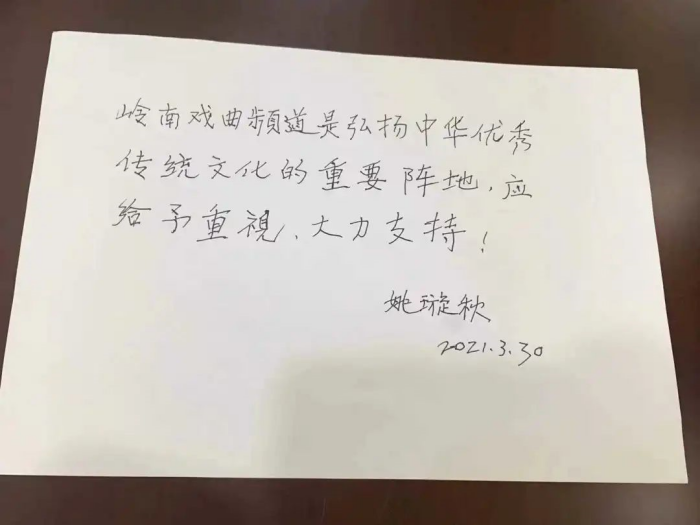 岭南戏曲頻道是弘扬中华优秀
传统文化的重要阵地，应
给予重視、大力支持！
姚璇秋
2021.3.30